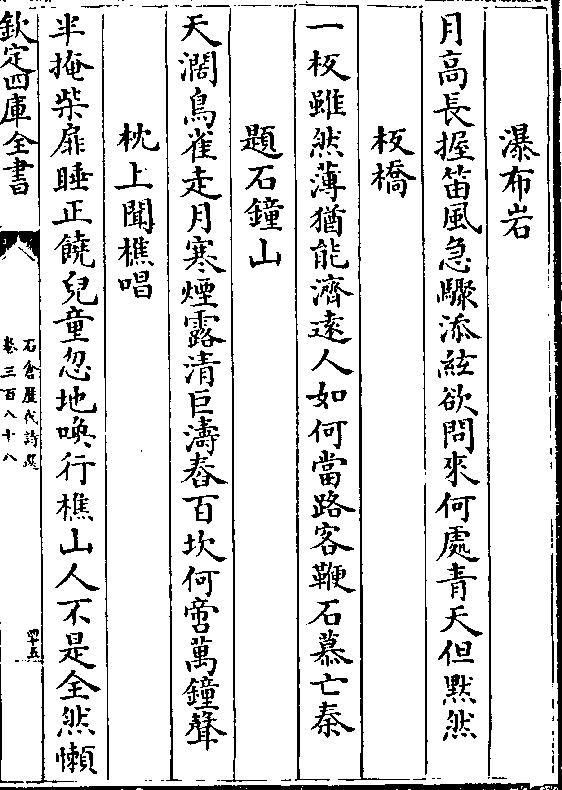 瀑布岩
月高長握笛風急驟添絃欲問來何處青天但默然
板橋
一板雖然薄猶能濟遠人如何當路客鞭石慕亡秦
題石鐘山
天濶鳥雀走月寒煙露清巨濤舂百坎何啻萬鐘聲
枕上聞樵唱
半掩柴扉睡正饒兒童忽地喚行樵山人不是全然懶
欽定四庫全書
石倉歷代詩選
卷三百八十八
四十五